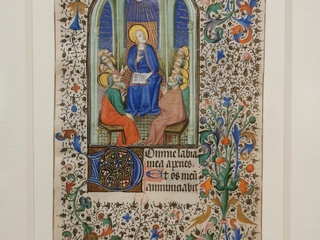 Domine labia
mea aperies
Et os meū
annunciabit